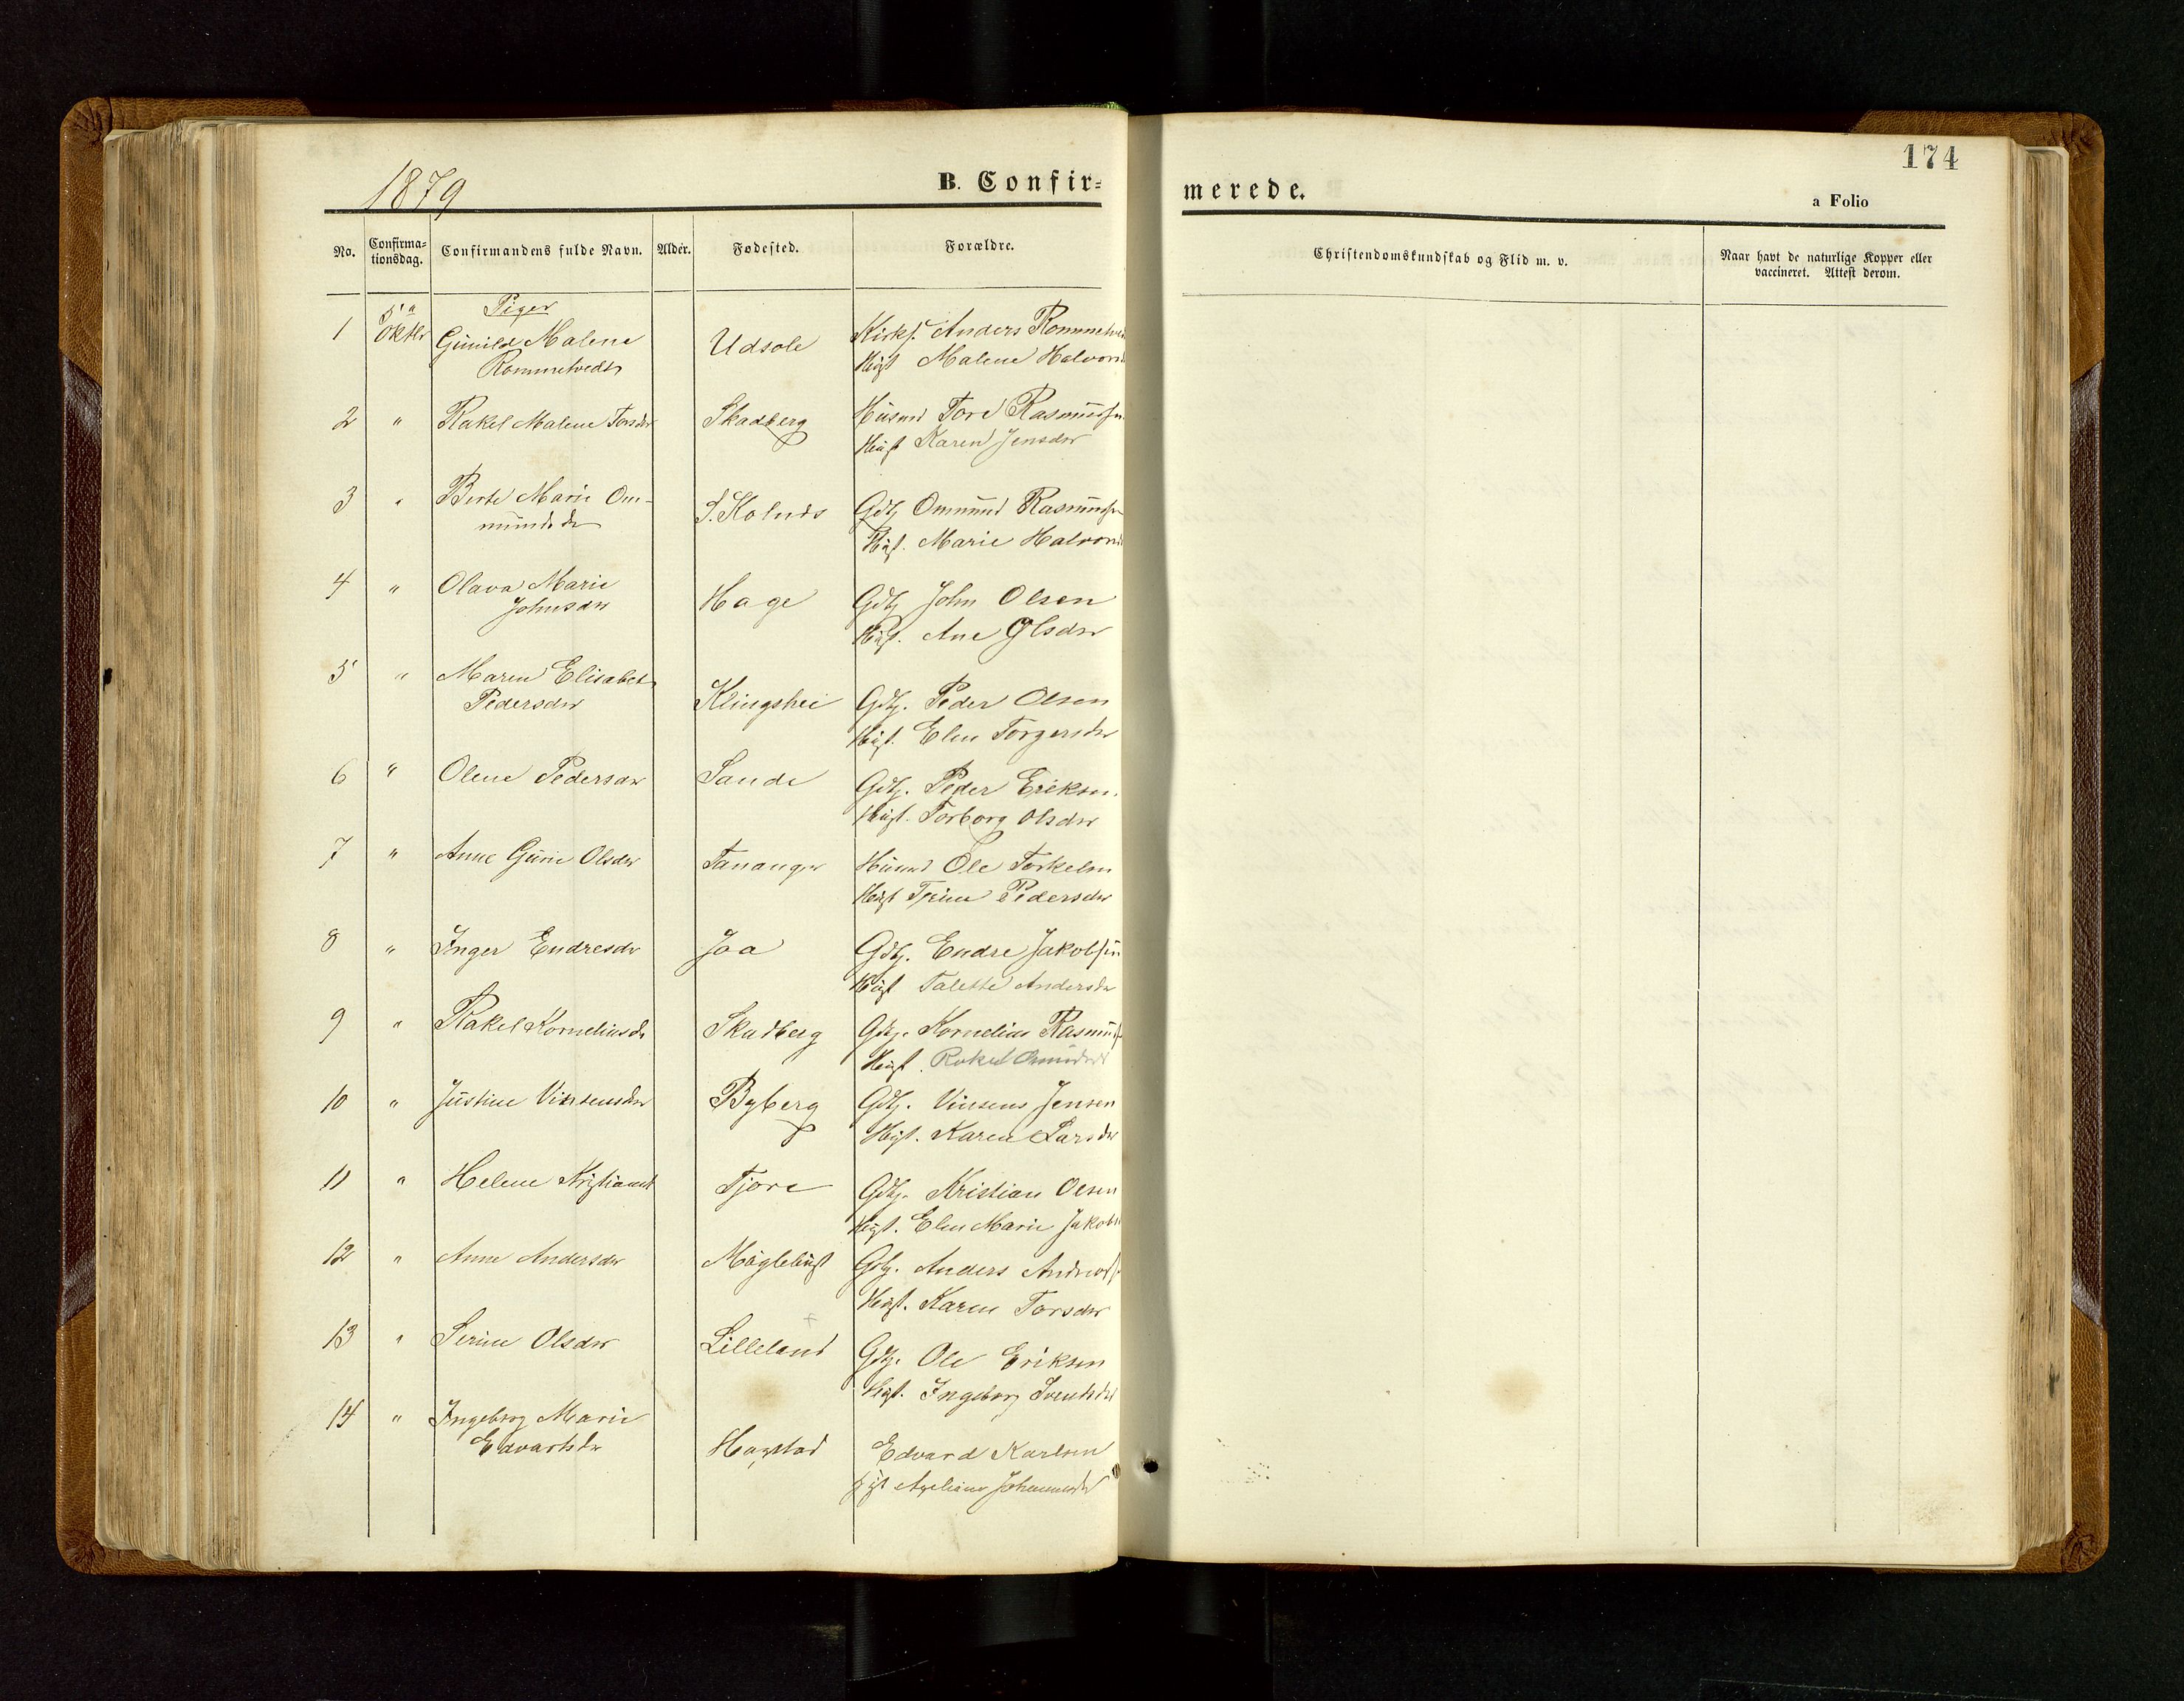 174
1879
B. Confir=
merede.
a Folio
No. Confirma=tionsdag. Confirmandens fulde Navn. Alder. Fødested. Forældre.
Christendomskundskab og Flid m. v. Naar havt de naturlige Kopper eller vaccineret. Attest derom.
Piger
1 5 Oktbr Gunild Malene Udsole Kirks. Anders Rommetve
Rommetvedt Hust Malene Halvors
2 " Rakel Malene Torsdtr Skadberg Husmd Tore Rasmussen
Hust Karen Jensdtr
3 " Berte Marie Om- S. Kolnes Gdbr Ommund Rasmuss
mundsdtr Hust. Marie Halvors
4 " Olava Marie Hage Gdbr John Olsen
Johnsdtr Hust. Ane Olsdtr
5 " Maren Elisabet Klingshei Gdbr. Peder Olsen
Pedersdtr Hust. Elen Torgersdtr
6 " Olene Pedersdtr Sande Gdbr. Peder Eriksen
Hust. Torborg Olsdtr
7 " Anne Gurie Olsdtr Tananger Husmd Ole Torkelsen
Hust Trine Pedersdtr
8 " Inger Endresdtr Joa Gdbr. Endre Jakobsen
Hust Talette Andersdtr
9 " Rakel Korneliusdtr Skadberg Gdbr. Kornelius Rasmuss
Hust. Rakel Omundsdt
10 " Justine Vinsensdtr Byberg Gdbr. Vinsens Jensen
Hust. Karen Larsdtr
11 " Helene Kristiansd Tjore Gdbr. Kristian Olsen
Hust. Elen Marie Jakobs
12 " Anne Andersdtr Meglebust Gdbr. Anders Andreas
Hust. Karen Torsdtr
13 " Serine Olsdtr Lilleland Gdbr. Ole Eriksen
Hust. Ingeborg Svendsdt
14 " Ingeborg Marie
Edvartsdtr Hogstad Edvard Karlsen
Johannesdtr